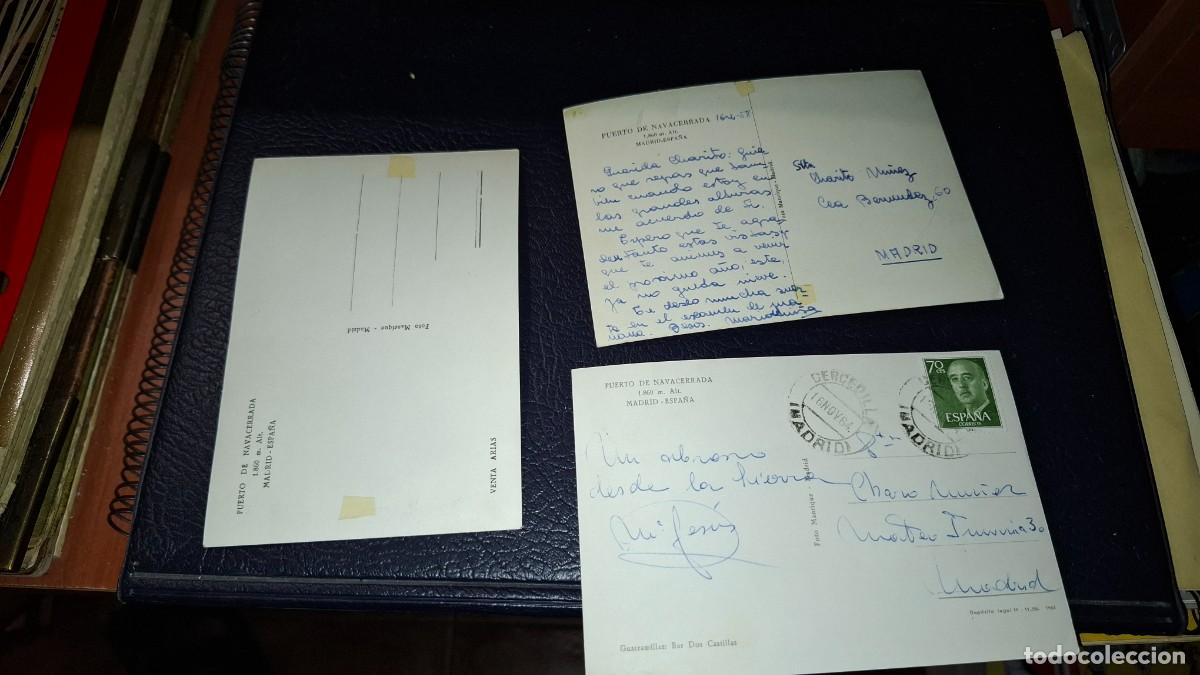 PUERTO DE NAVACERRADA
1.860 m. Alt.
MADRID-ESPAÑA
Foto Manrique - Madrid
VENTA ARIAS
PUERTO DE NAVACERRADA
1.860 m. Alt.
MADRID-ESPAÑA
Querida Charito: Quie
ro que sepas que tam-
bién cuando estoy en
las grandes alturas
me acuerdo de Ti.
Espero que te agra-
den tanto estas vistas y
que te animes a venir
el próximo año, este
ya no queda nieve.
Te deseo mucha suer-
te en el examen de ma-
ñana. Besos.
Foto Manrique - Madrid
Srta
Charito Muñoz
Cea Bermudez, 60
MADRID
PUERTO DE NAVACERRADA
1.860 m. Alt.
MADRID-ESPAÑA
CERCEDILLA
16 NOV 64
(MADRID)
(MADRID)
70 CTS
ESPAÑA
CORREOS
Un abrazo
desde la sierra
Mª Jesús
Foto Manrique - Madrid
Charo Muñoz
Mateo Inurria 30
Madrid
Guarramillas: Bar Dos Castillas
todocoleccion